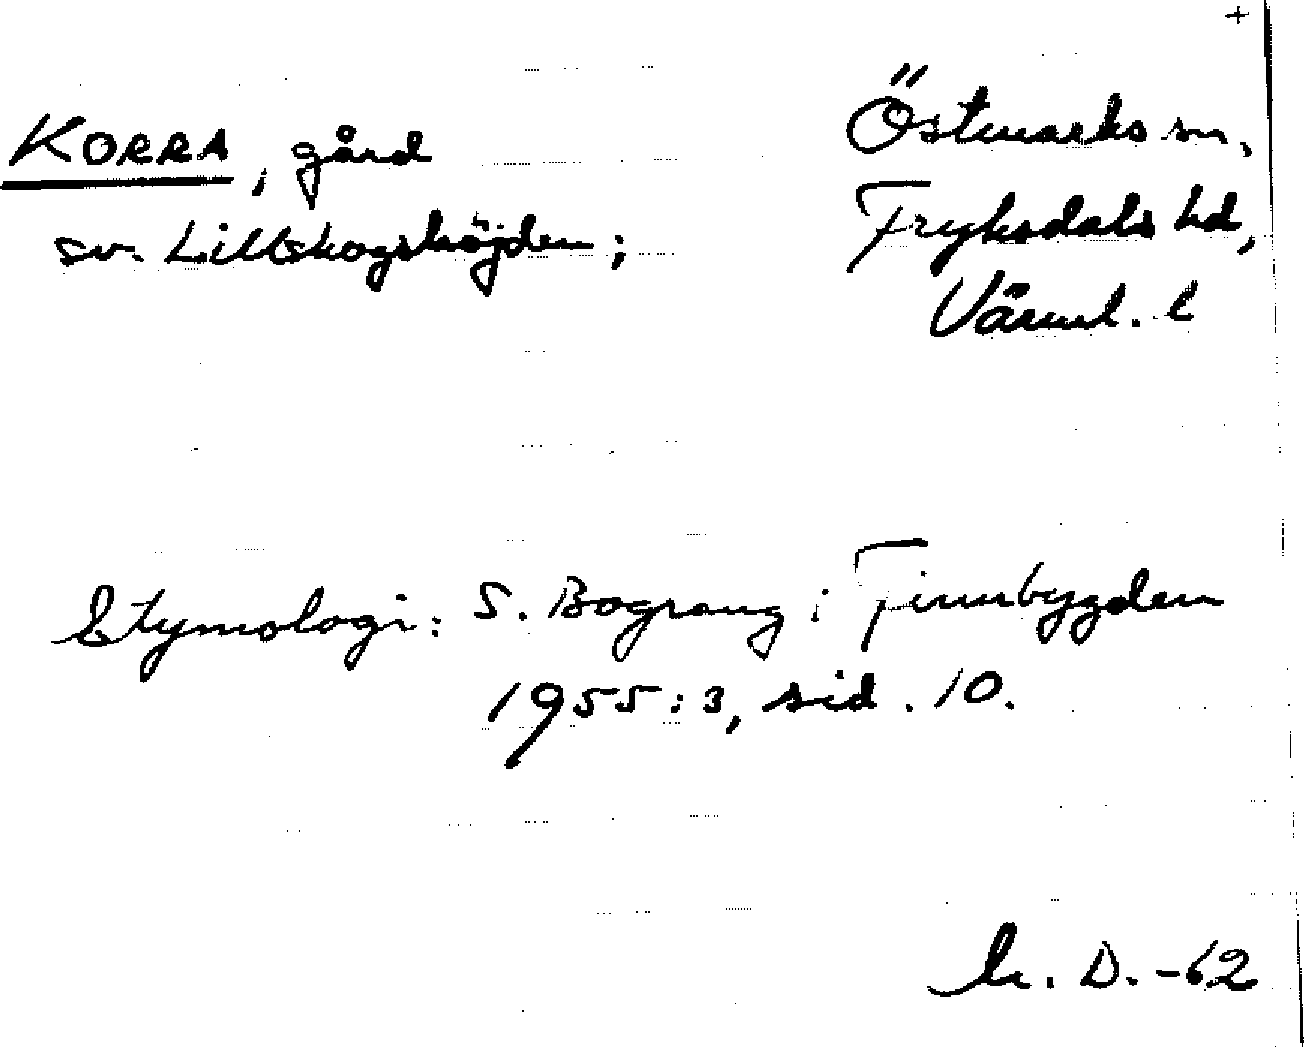 +
KORRA, gård
sv. Lillskogshöjden;
Östmarks sn,
Fryksdals hd,
Värml. l
Etymologi: S. Bograng i Finnbygden
1955:3, sid. 10.
D. -62